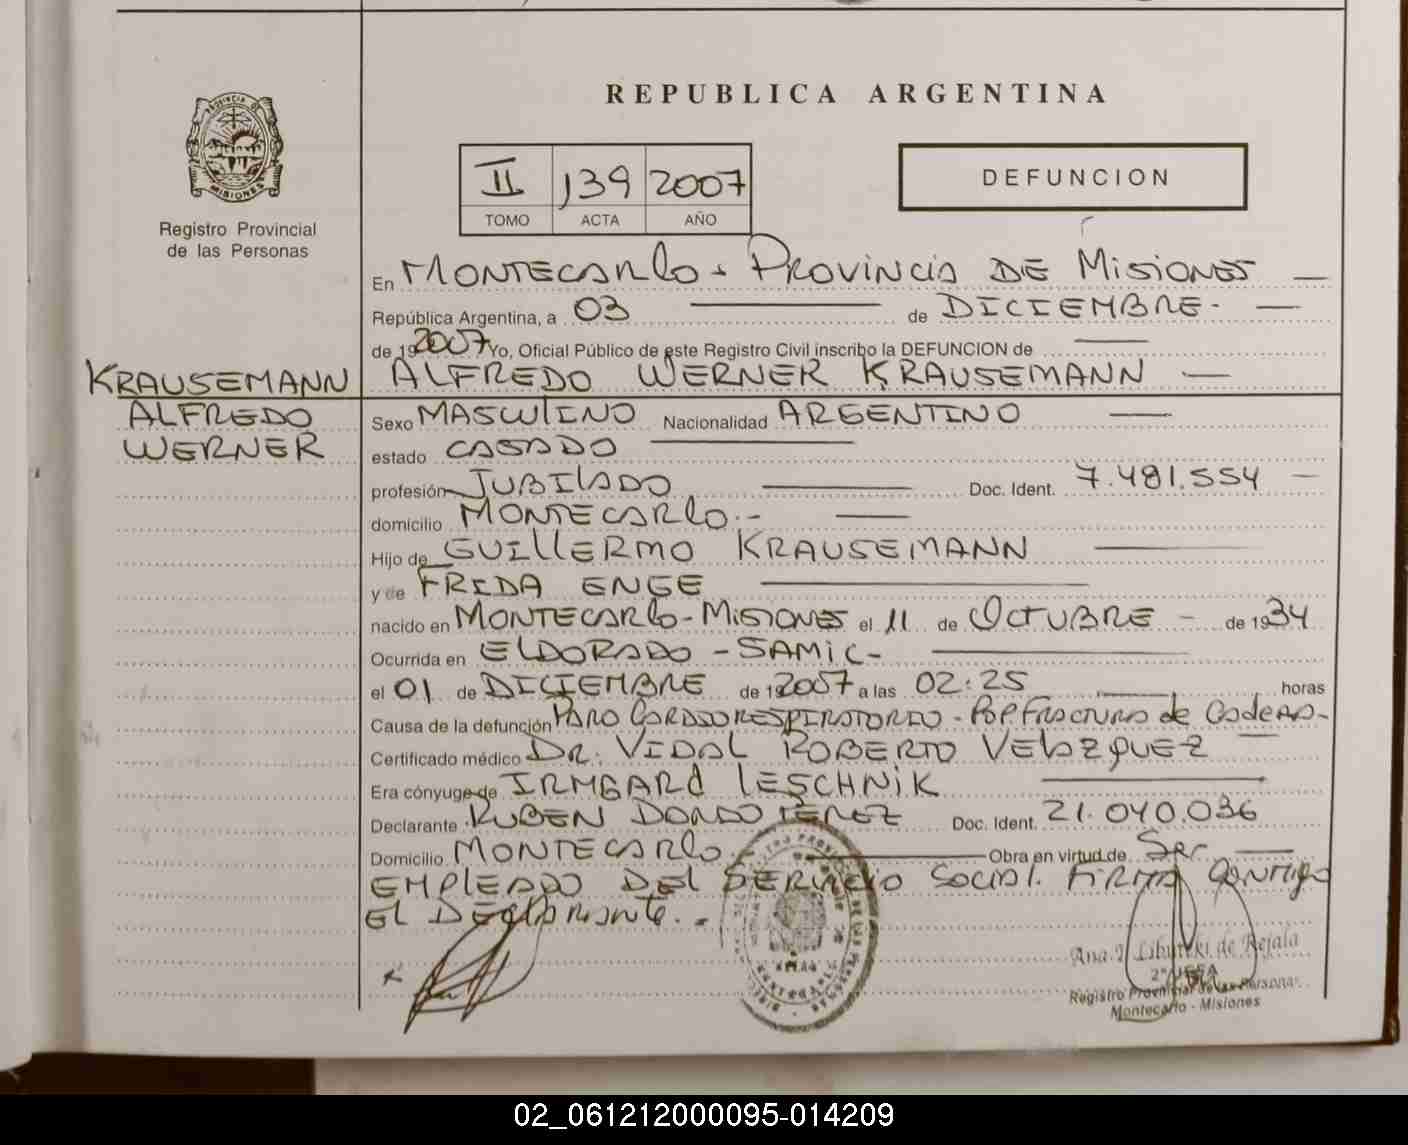 REPUBLICA ARGENTINA
PROVINCIA DE
MISIONES
Registro Provincial
de las Personas
II 139 2007
TOMO ACTA AÑO
DEFUNCION
En MONTECARLO - PROVINCIA DE MISIONES
República Argentina, a 03 de DICIEMBRE-
de 192007 Yo, Oficial Público de este Registro Civil inscribo la DEFUNCION de
ALFREDO WERNER KRAUSEMANN
KRAUSEMANN
ALFREDO
WERNER
Sexo MASCULINO Nacionalidad ARGENTINO
estado CASADO
profesión JUBILADO Doc. Ident. 7.481.554
domicilio MONTECARLO.-
Hijo de GUILLERMO KRAUSEMANN
y de FRIDA ENGE
nacido en MONTECARLO-MISIONES el 11 de OCTUBRE - de 1934
Ocurrida en ELDORADO - SAMIC-
el 01 de DICIEMBRE de 192007 a las 02:25 horas
Causa de la defunción PARO CARDIORESPIRATORIO - POP. FRACTURA de CADERA-
Certificado médico DR. VIDAL ROBERTO VELAZQUEZ
Era cónyuge de IRMGARd LESCHNIK
Declarante RUBEN DONDO PEREZ Doc. Ident. 21.040.036
Domicilio MONTECARLO Obra en virtud de Ser
EMPLEADO DEL SERVICIO SOCIAL. FIRMA CONMIGO
EL DECLARANTE.-
Ana I. de Rejala
Registro Provincial de las Personas
Montecarlo - Misiones
02_061212000095-014209